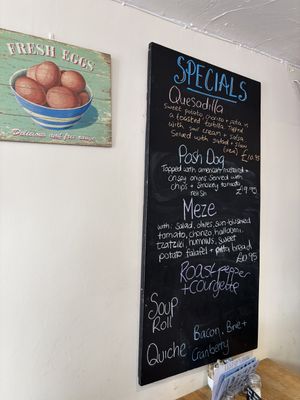 FRESH EGGS
Delicious and free range
SPECIALS
Quesadilla
Sweet potato, chorizo + feta in
a toasted tortilla topped
with sour cream + salsa
Served with salad + slaw
(new) £10.95
Posh Dog
Topped with american mustard +
crispy onions served with
chips + smokey tomato
relish
Meze
with: salad, olives, sun-blushed
tomato, chorizo, halloumi,
tzatziki, hummus, sweet
potato falafel + pitta bread
£10.95
Roast pepper
+ courgette
Soup
Roll
Bacon, Brie +
Quiche
Cranberry